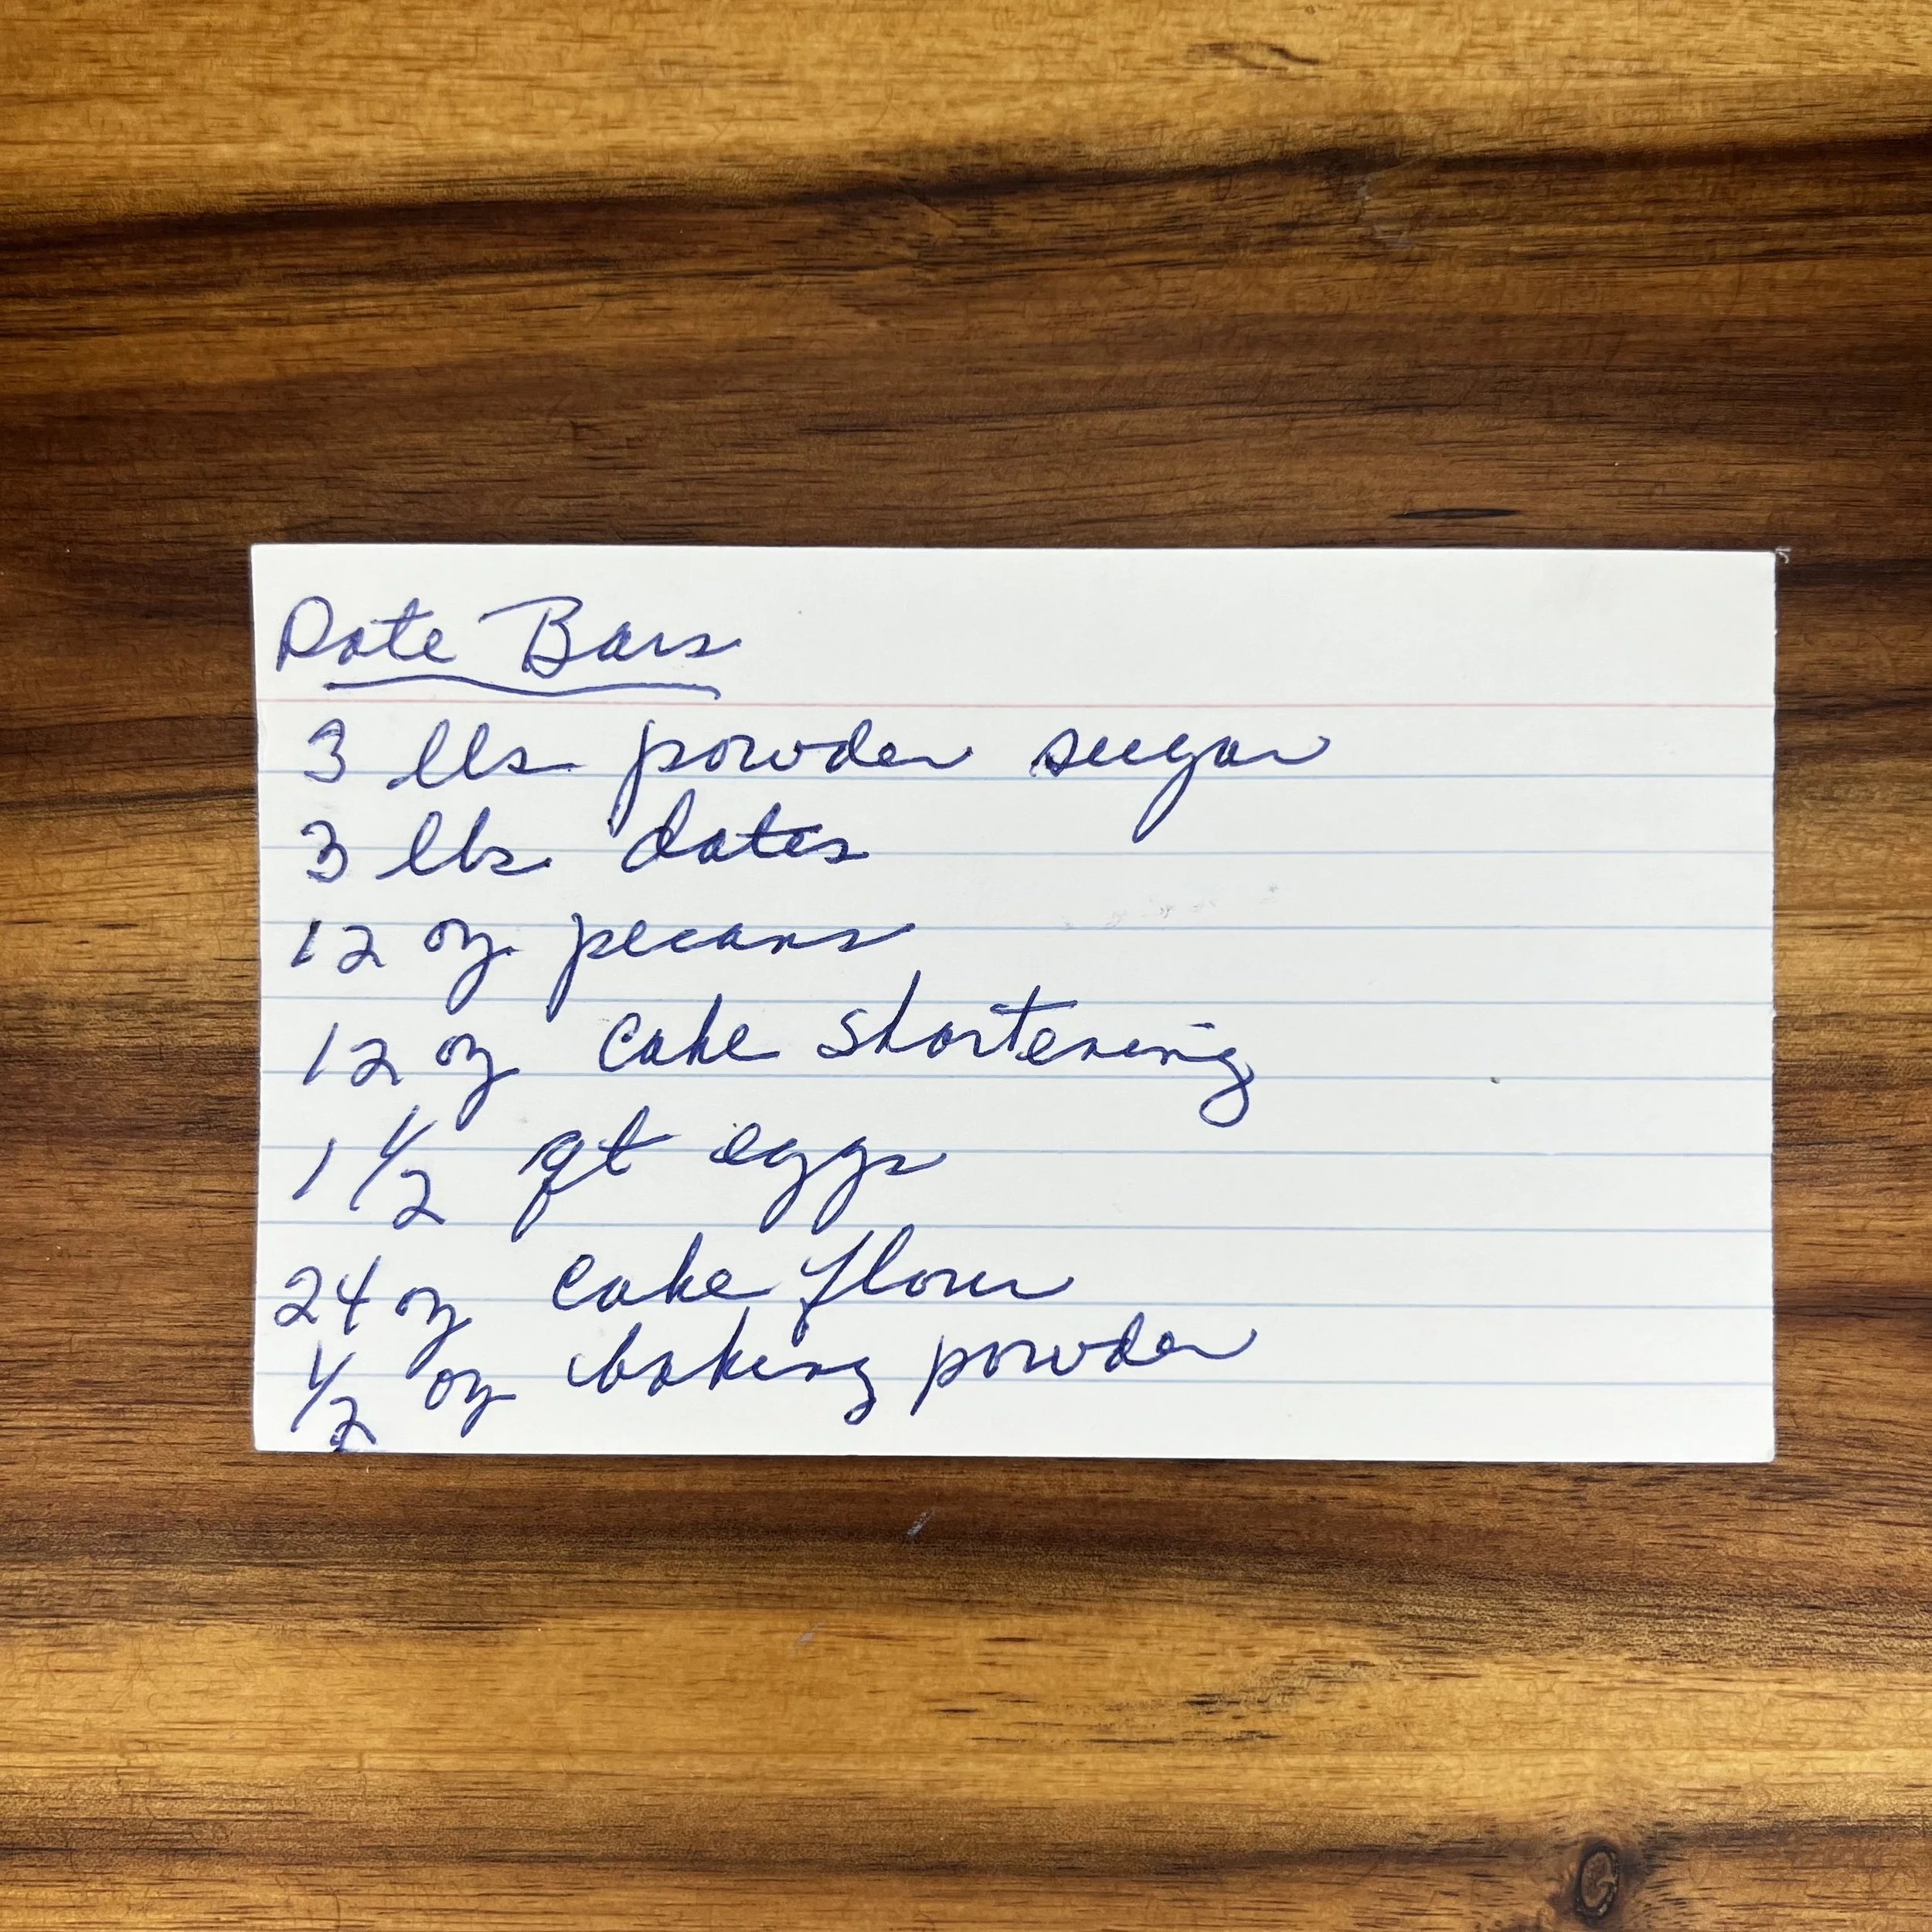 Date Bars
3 lbs powder sugar
3 lbs dates
12 oz pecans
12 oz cake shortening
1 1/2 qt eggs
24 oz cake flour
1/2 oz baking powder